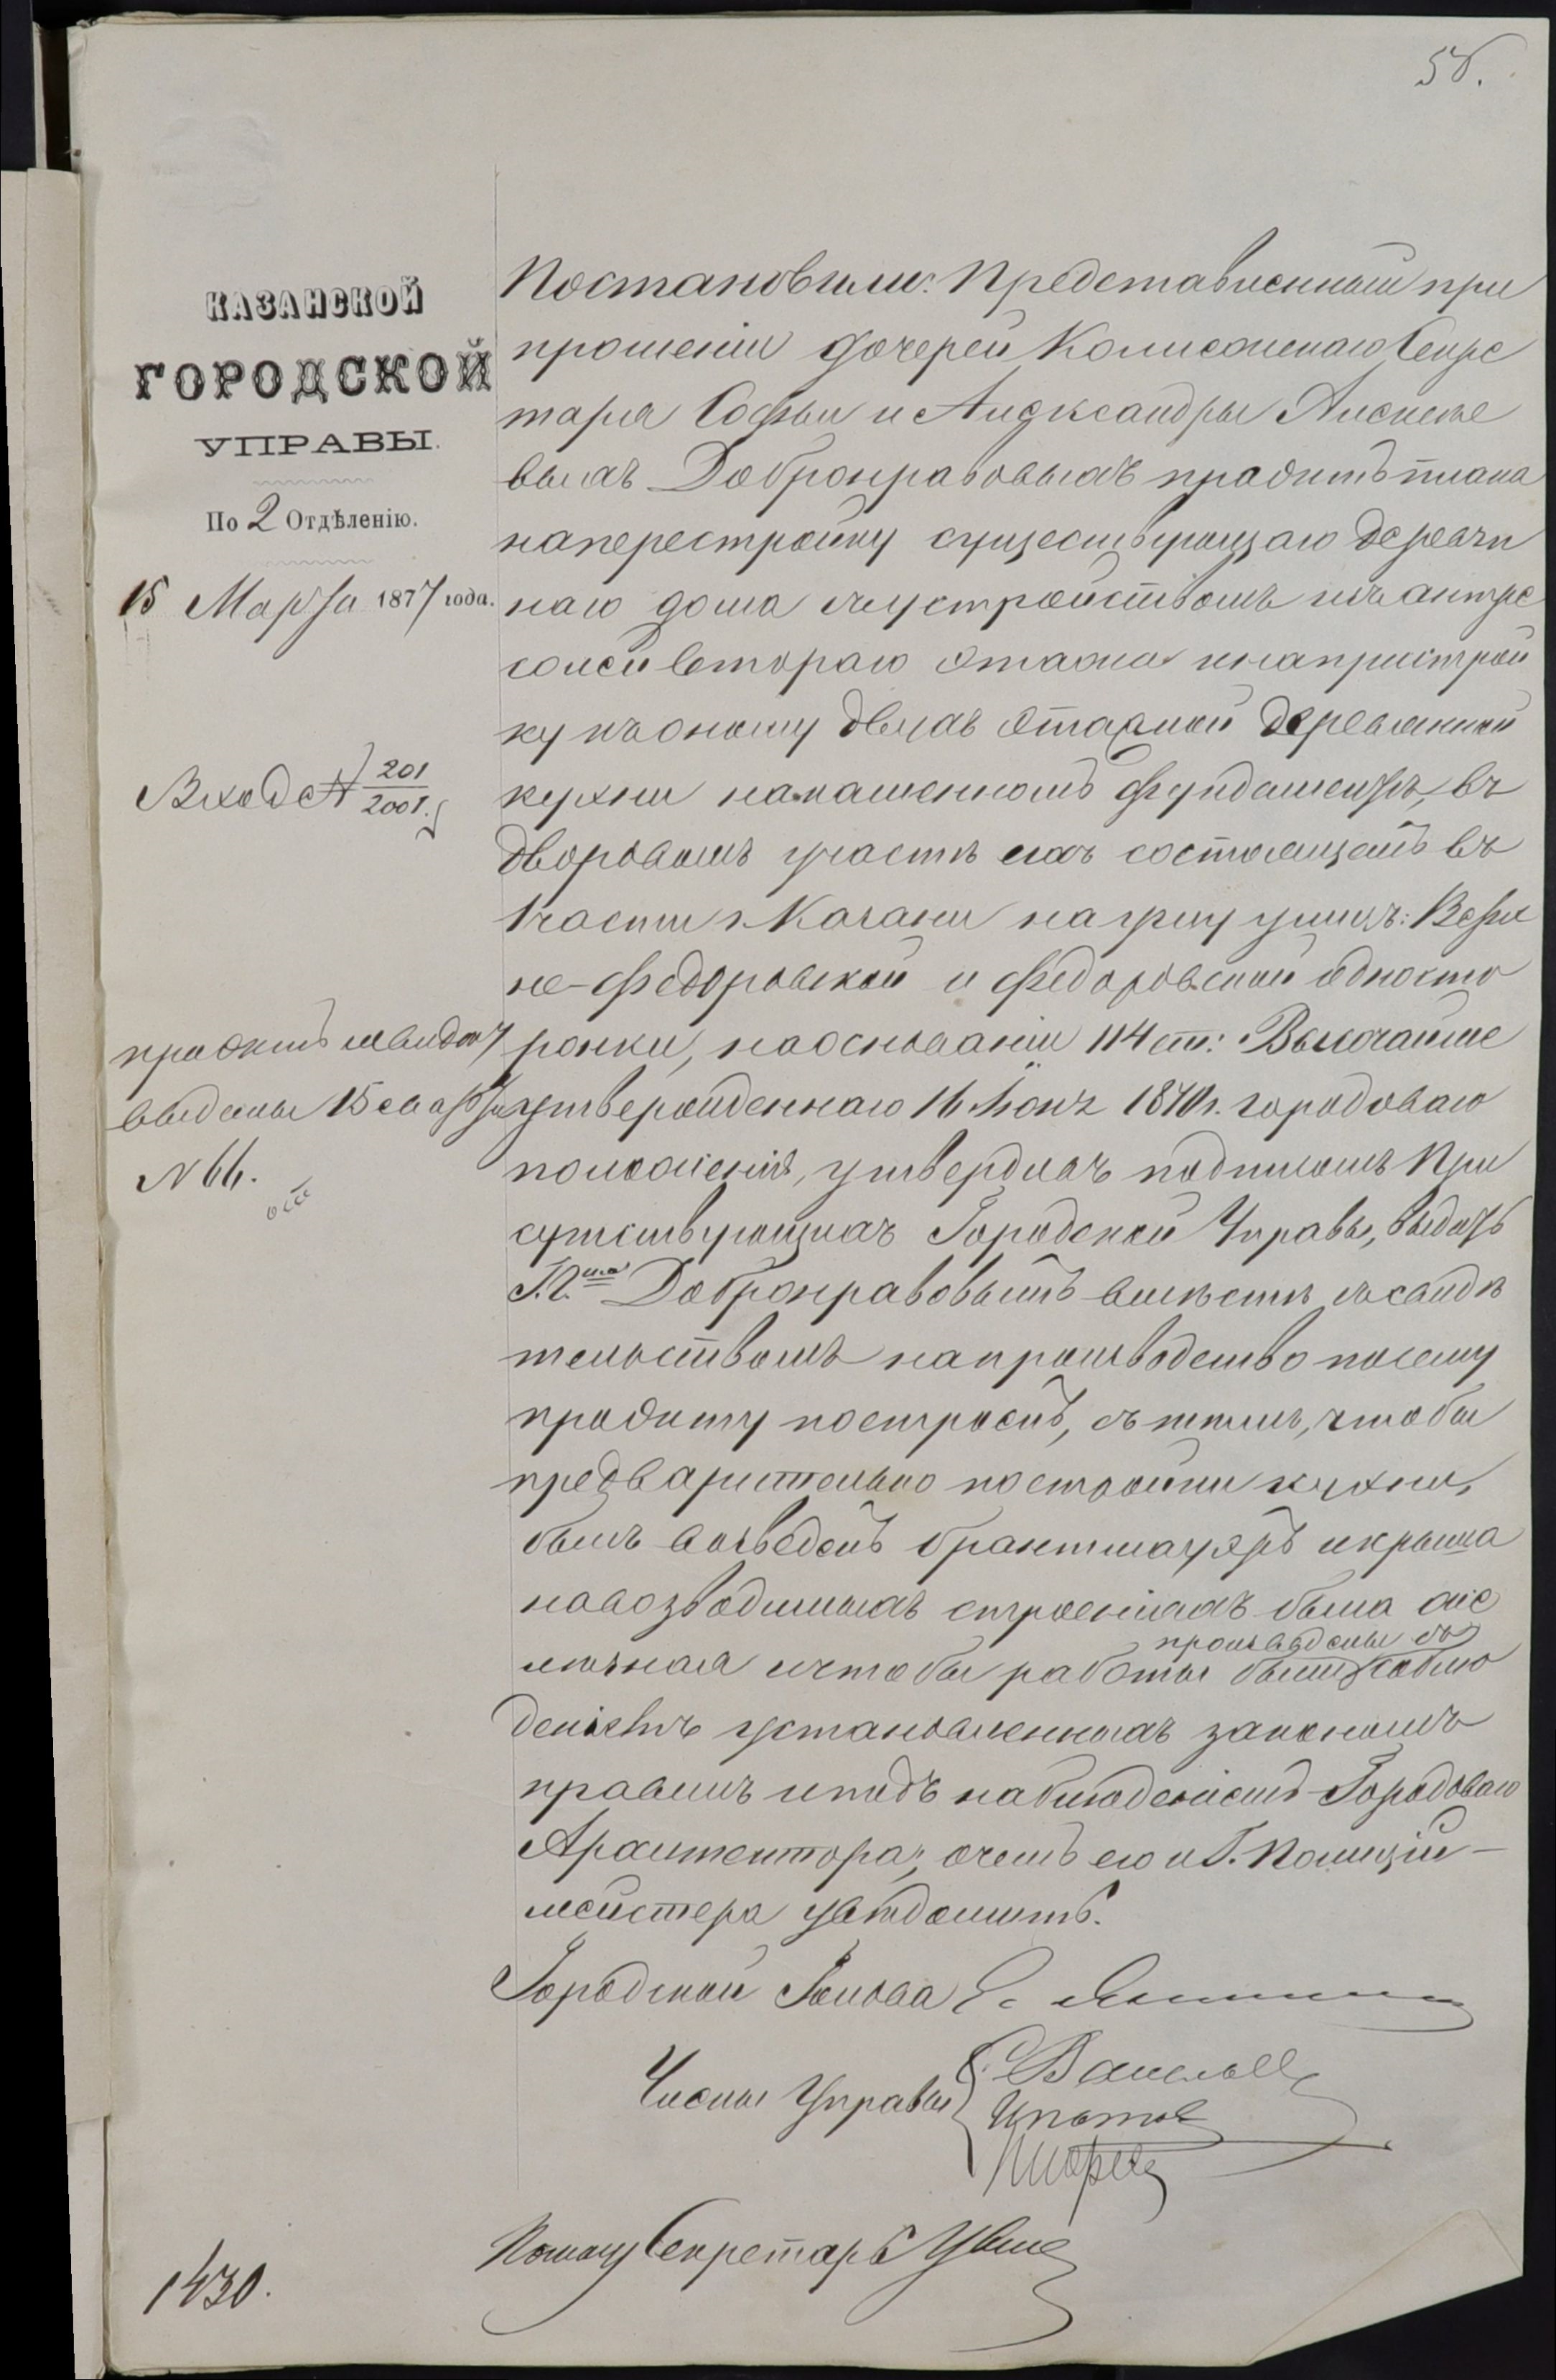 56.
КАЗАНСКОЙ
ГОРОДСКОЙ
УПРАВЫ.
По 2 Отдѣленію.
15 Марта 1877 года.
Вход № 201/2001.
проэктъ и свид.
выданы 15 марта
№ 66.
Постановили: Представленный при
прошеніи дочерей Колежскаго Секре
таря Софьи и Александры Алексѣе
выхъ Добронравовыхъ проэктъ плана
на перестройку существующаго деревян
наго дома съ устройствомъ изъ антре
солей втораго этажа и на пристрой
ку къ оному двухъ этажной деревянной
кухни на каменномъ фундаментѣ, въ
дворовомъ участкѣ ихъ состоящемъ въ
1 части г. Казани на углу улицъ: Верх
не-Федоровской и Федоровской односто
ронки, на основаніи 114 ст: Высочайше
утвержденнаго 16 Іюня 1870 г. городоваго
положенія, утвердивъ подписомъ При
сутствующихъ Городской Управы, выдать
Г.г.жа Добронравовымъ вмѣстѣ съ свидѣ
тельствомъ на производство по сему
проэкту построекъ, съ тѣмъ, чтобы
предварительно постройки кухни,
былъ возведенъ брантмауэръ и крыша
на возводимыхъ строеніяхъ была же
лѣзная и чтобы работы были произведены съ соблю
деніемъ установленныхъ закономъ
правилъ и подъ наблюденіемъ Городоваго
Архитектора, о чемъ его и Г. Полиціи-
мейстера увѣдомить.
Городской Голова Е.
Члены Управы
С. Васильев
Ипатов
Помощ Секретаря
1430.